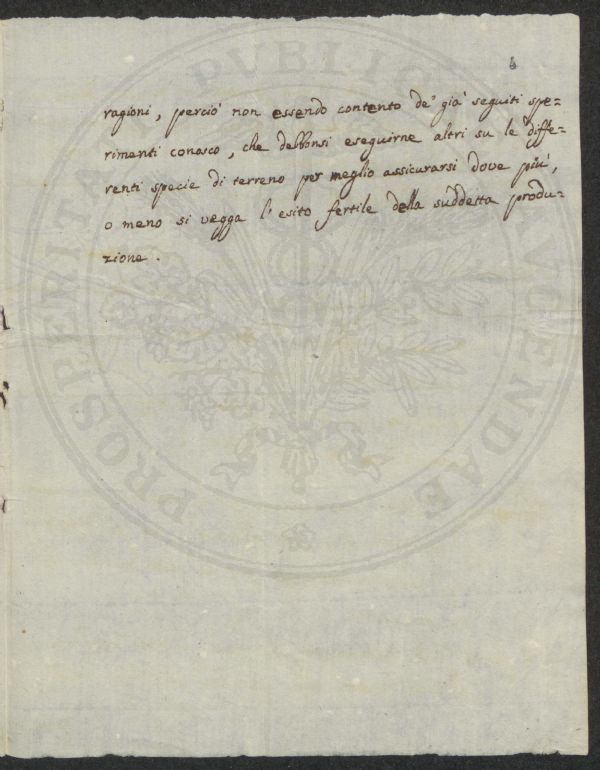 4
ragioni, perciò non essendo contento de' già seguiti spe=
rimenti conosco, che debbonsi eseguirne altri su le diffe=
renti specie di terreno per meglio assicurarsi dove più,
o meno si vegga l'esito fertile della suddetta produ=
zione.
PROSPERITATI PVBLICAE AVGENDAE